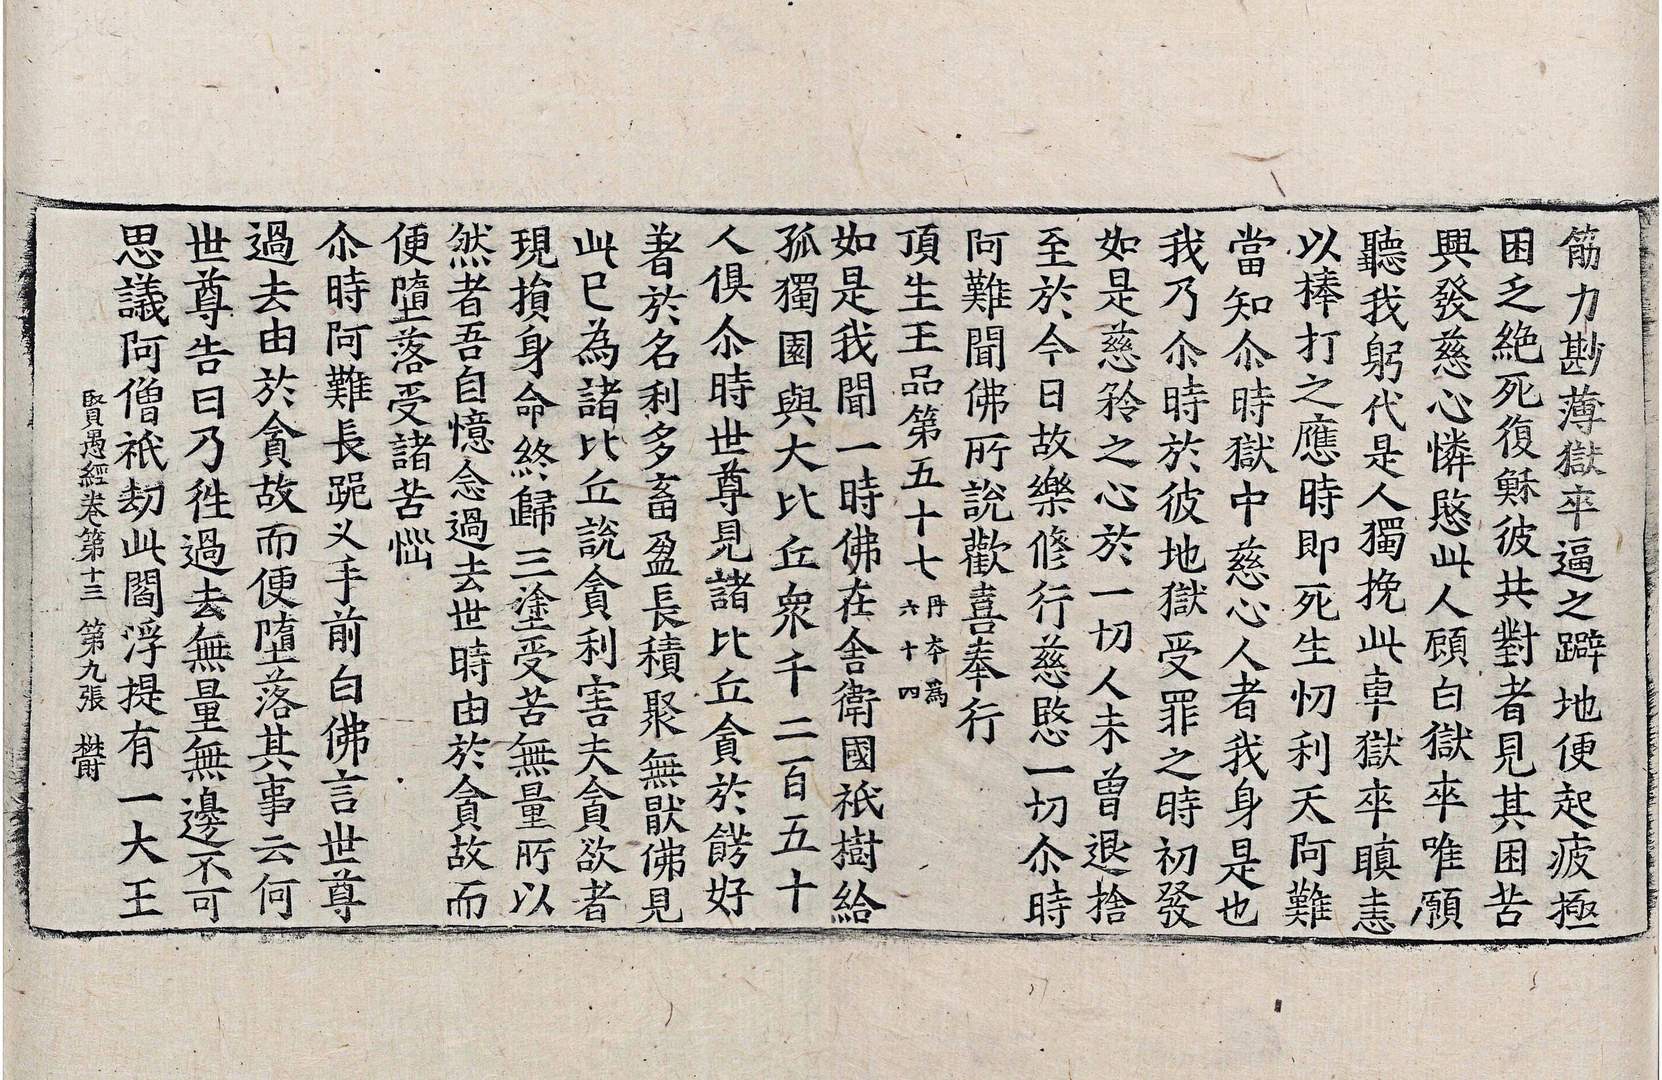 筋力尠薄獄卒逼之躃地便起疲極
困乏絶死復穌彼共對者見其困苦
興發慈心憐愍此人顧白獄卒唯願
聽我躬代是人獨挽此車獄卒瞋恚
以棒打之應時即死生忉利天阿難
當知尒時獄中慈心人者我身是也
我乃尒時於彼地獄受罪之時初發
如是慈矜之心於一切人未曾退捨
至於今日故樂修行慈愍一切尒時
阿難聞佛所說歡喜奉行
頂生王品第五十七 丹本為六十四
如是我聞一時佛在舍衛國祇樹給
孤獨園與大比丘衆千二百五十
人俱尒時世尊見諸比丘貪於餝好
著於名利多畜盈長積聚無猒佛見
此已為諸比丘說貪利害夫貪欲者
現損身命終歸三塗受苦無量所以
然者吾自憶念過去世時由於貪故而
便墮落受諸苦惱
尒時阿難長跪叉手前白佛言世尊
過去由於貪故而便墮落其事云何
世尊告曰乃徃過去無量無邊不可
思議阿僧祇劫此閻浮提有一大王
賢愚經卷第十三 第九張